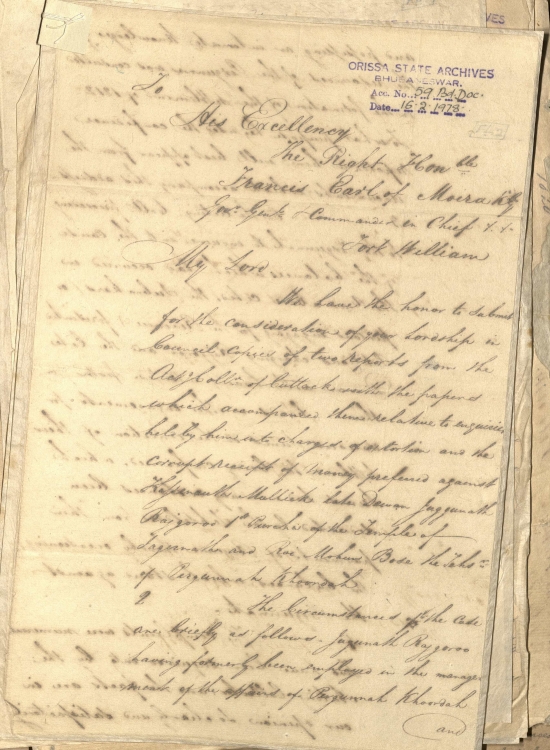 ORISSA STATE ARCHIVES
BHUBANESWAR.
Acc. No. 59 Bd. Doc.
Date 16-2-1978
To
His Excellency
The Right Honble
Francis Earl of Moira K.G.
Govr. Genl. & Commander in Chief &. &.
Fort William
My Lord
We have the honor to submit
for the consideration of your Lordship in
Council copies of two reports from the
Actg. Collr. of Cuttack with the papers
which accompanied them relative to enquiries
held by him into charges of extortion and the
corrupt receipt of money preferred against
Mullick late Dewan Juggunath
Rajgooroo of the Temple of
Jugunnath and Rae Mohun Bose the Tehs
of Pergunnah Khoordah
2 The Circumstances of the Case
are briefly as follows. Jugunath Rajgooroo
having formerly been employed in the manage-
ment of the affairs of Pergunnah Khoordah
and